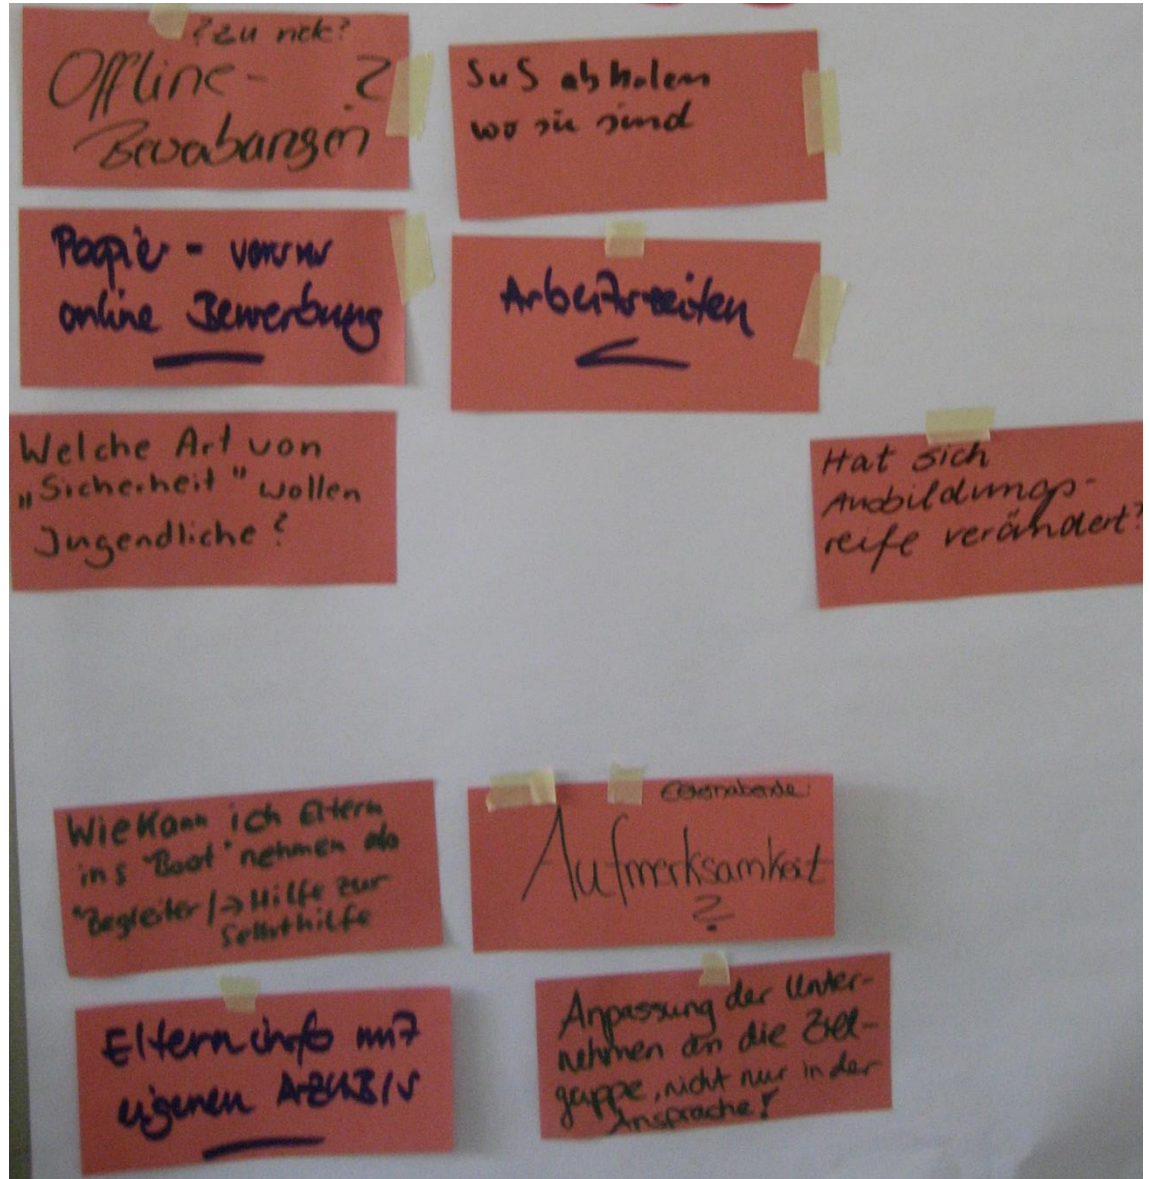 ?zu nick?
Offline- ?
Bewabungen
SuS abholen
wo sie sind
Papier - vorur
online Bewerbung
Arbeitszeiten
Welche Art von
„Sicherheit" wollen
Jugendliche?
Hat sich
Ausbildungs-
reife verändert?
Wie kann ich Eltern
ins "Boot" nehmen als
"Begleiter/→ Hilfe zur
Selbsthilfe
Elternabende:
Aufmerksamkeit
?
Elterninfo mit
eigenen AZUBIS
Anpassung der Unter-
nehmen an die Ziel-
gruppe, nicht nur in der
Ansprache!